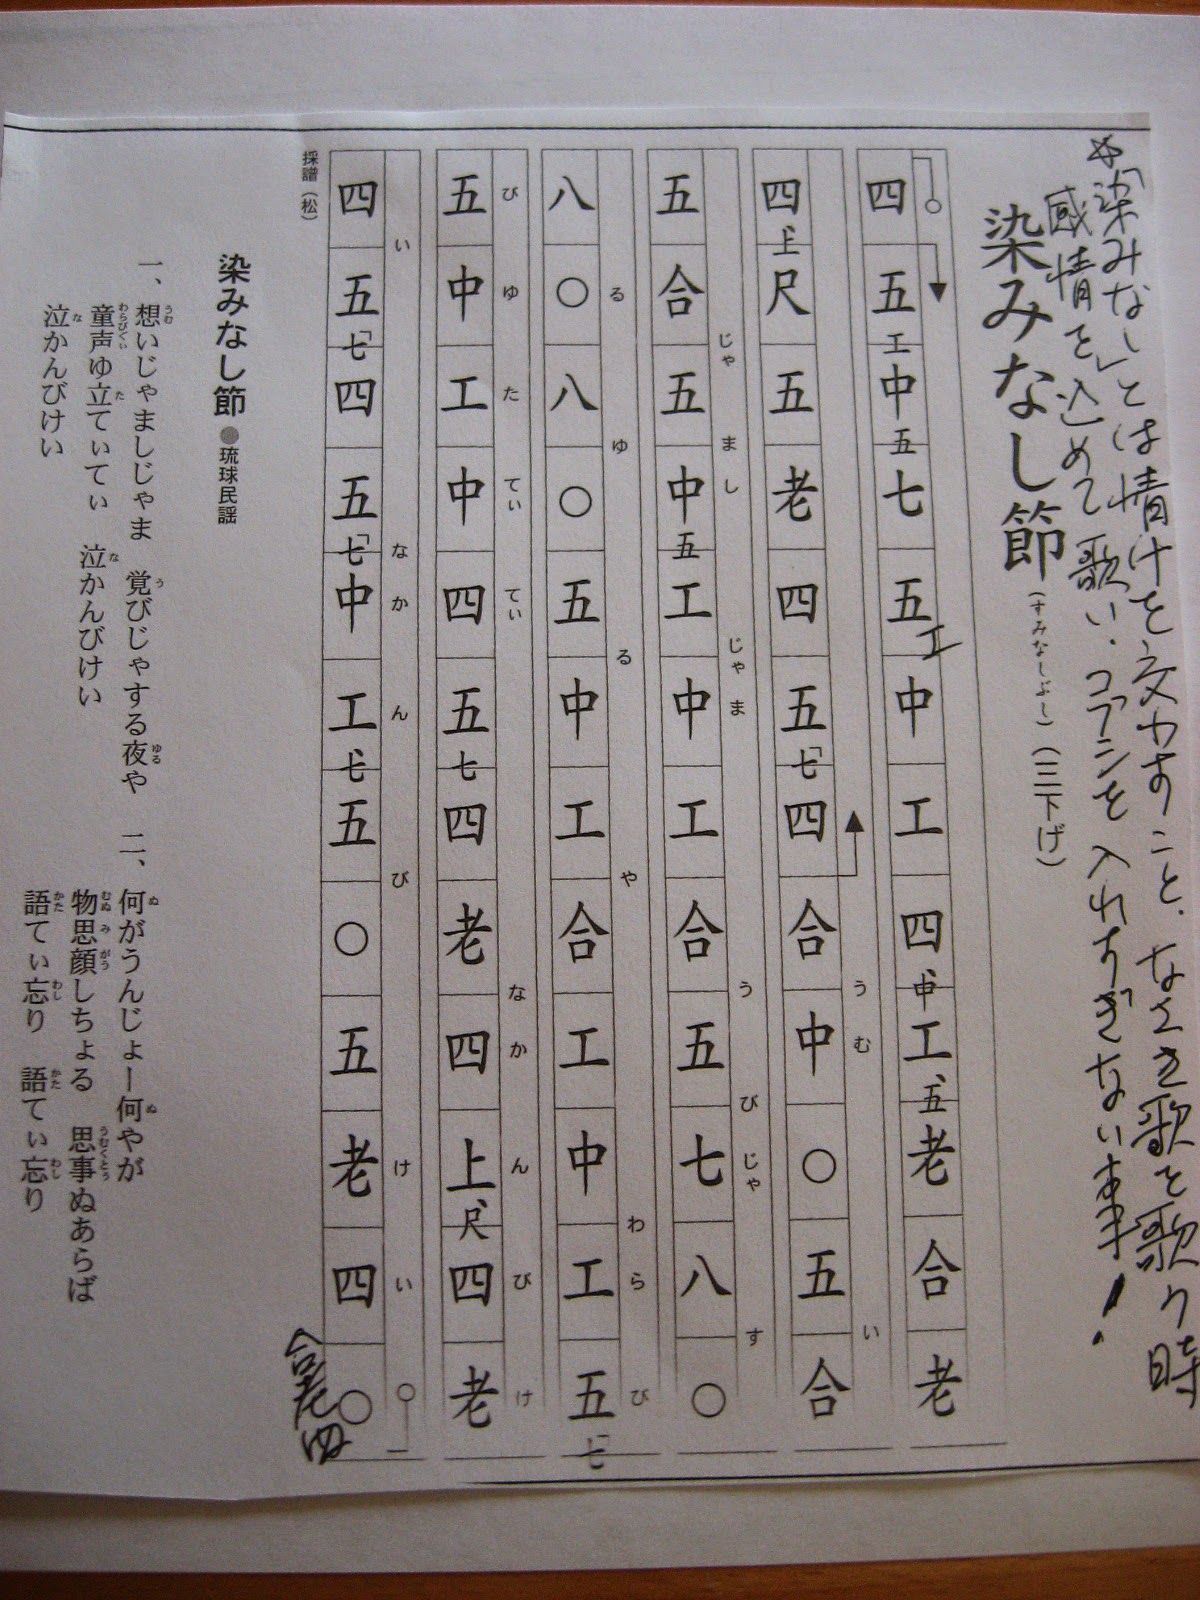 ☆「染みなし」とは情けを交わすこと、なさき歌を歌う時
感情を込めて歌い、コブシを入れすぎない事!
染みなし節(すみなしぶし)(三下げ)
四五工中五七五工中工四中工五老合老
う む い
四上尺五老四五七四合中〇五合
じゃ ま し じゃ ま う び じゃ す
五合五中五工中工合五七八〇
る ゆ る や わ ら び
八〇八〇五中工合工中工五七
び ゆ た てぃ てぃ な か ん び け
五中工中四五七四老四上尺四老
い な か ん び け い
四五七四五七中工七五〇五老四〇
合老四
採譜(松)
染みなし節●琉球民謡
一、想いじゃましじゃま 覚びじゃする夜や
うむ う ゆる
童声ゆ立てぃてぃ 泣かんびけい
わらびぐい た な
泣かんびけい
な
二、何がうんじょー何やが
ぬ ぬ
物思顔しちょる 思事ぬあらば
むぬ み がう うむくとぅ
語てぃ忘り 語てぃ忘り
かた わし かた わし